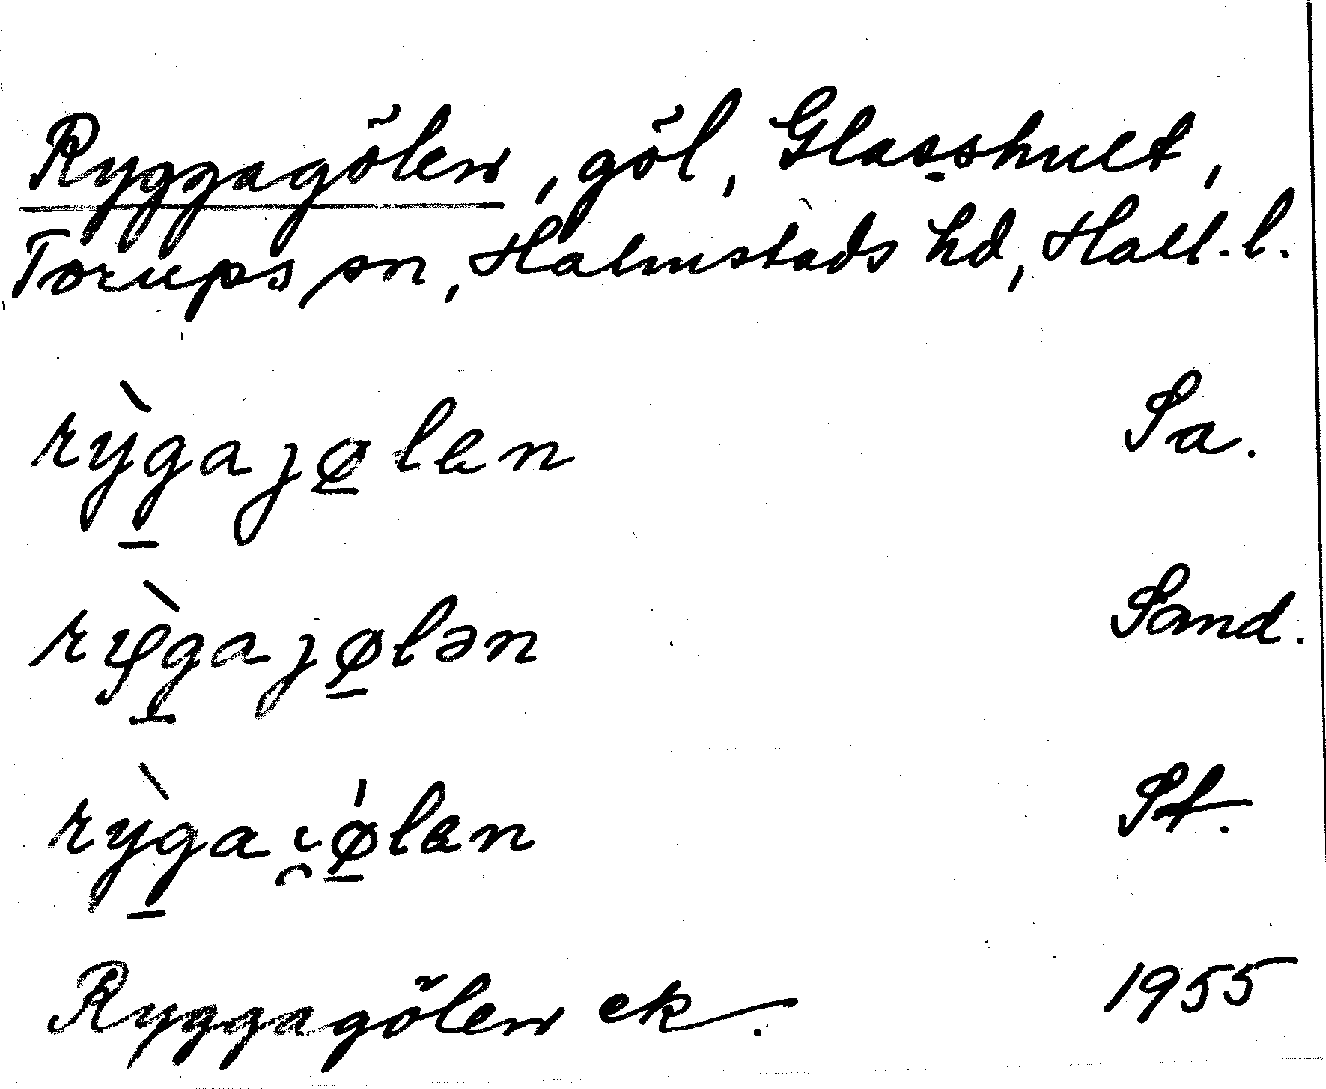 Ryggagölen, göl, Glasshult,
Torups sn, Halmstads hd, Hall. l.
rỳgajø̠len Sa.
rỳgajø̠lən Sand.
rỳgai̯ǿ̠len St.
Ryggagölen ek. 1955